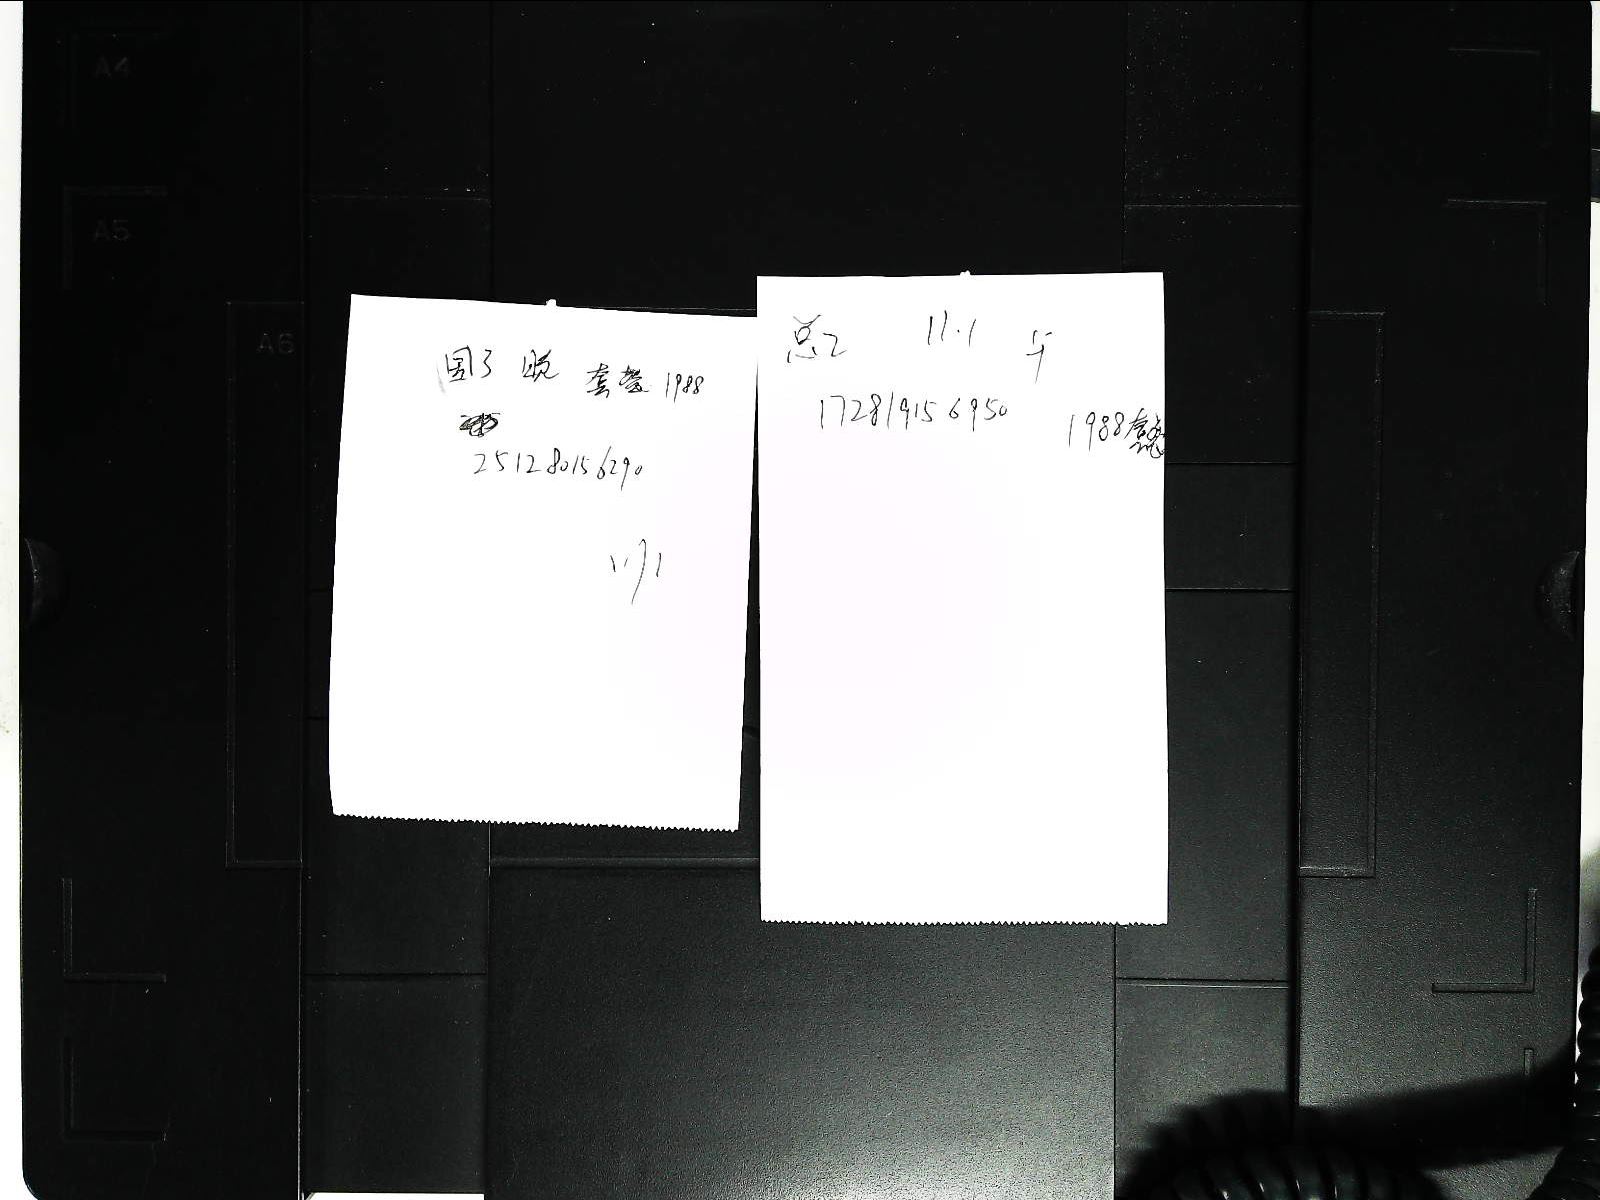 A4
A5
A6
国3 晚 套餐 1988
251280156290
11/1
总2 11.1 午
172819156950
1988套餐